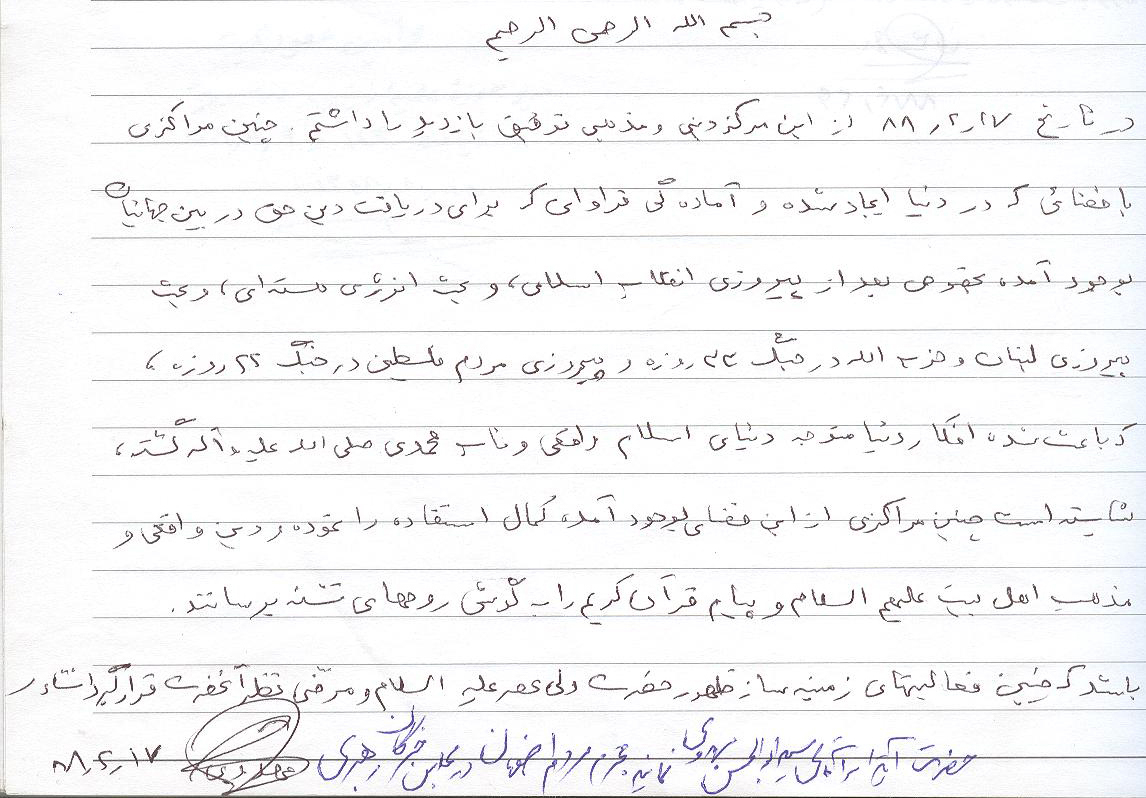 بسم الله الرحمن الرحیم
در تاریخ ۸۸٫۲٫۱۷ از این مرکز دینی و مذهبی توفیق بازدید را داشتم. چنین مراکزی
با فضائی که در دنیا ایجاد شده و آماده گی فراوانی که برای دریافت دین حق در بین جهانیان
بوجود آمده بخصوص بعد از پیروزی انقلاب اسلامی، و بحث انرژی هسته‌ای، و بحث
پیروزی لبنان و حزب الله در جنگ ۳۳ روزه و پیروزی مردم فلسطین در جنگ ۲۲ روزه،
که باعث شده افکار دنیا متوجه دنیای اسلام واقعی و ناب محمدی صلی الله علیه و آله گشته،
شایسته است چنین مراکزی از این فضای بوجود آمده کمال استفاده را نموده و دین واقعی و
مذهب اهل بیت علیهم السلام و پیام قرآن کریم را به گوش روحهای تشنه برسانند.
باشد که چنین فعالیتهای زمینه ساز ظهور حضرت ولی عصر علیه السلام و مرضی نظر آنحضرت قرار گیرد انشاءالله
حضرت آیة الله آقای سید ابوالحسن مهدوی نماینده محترم مردم اصفهان در مجلس خبرگان رهبری
۸۸٫۲٫۱۷